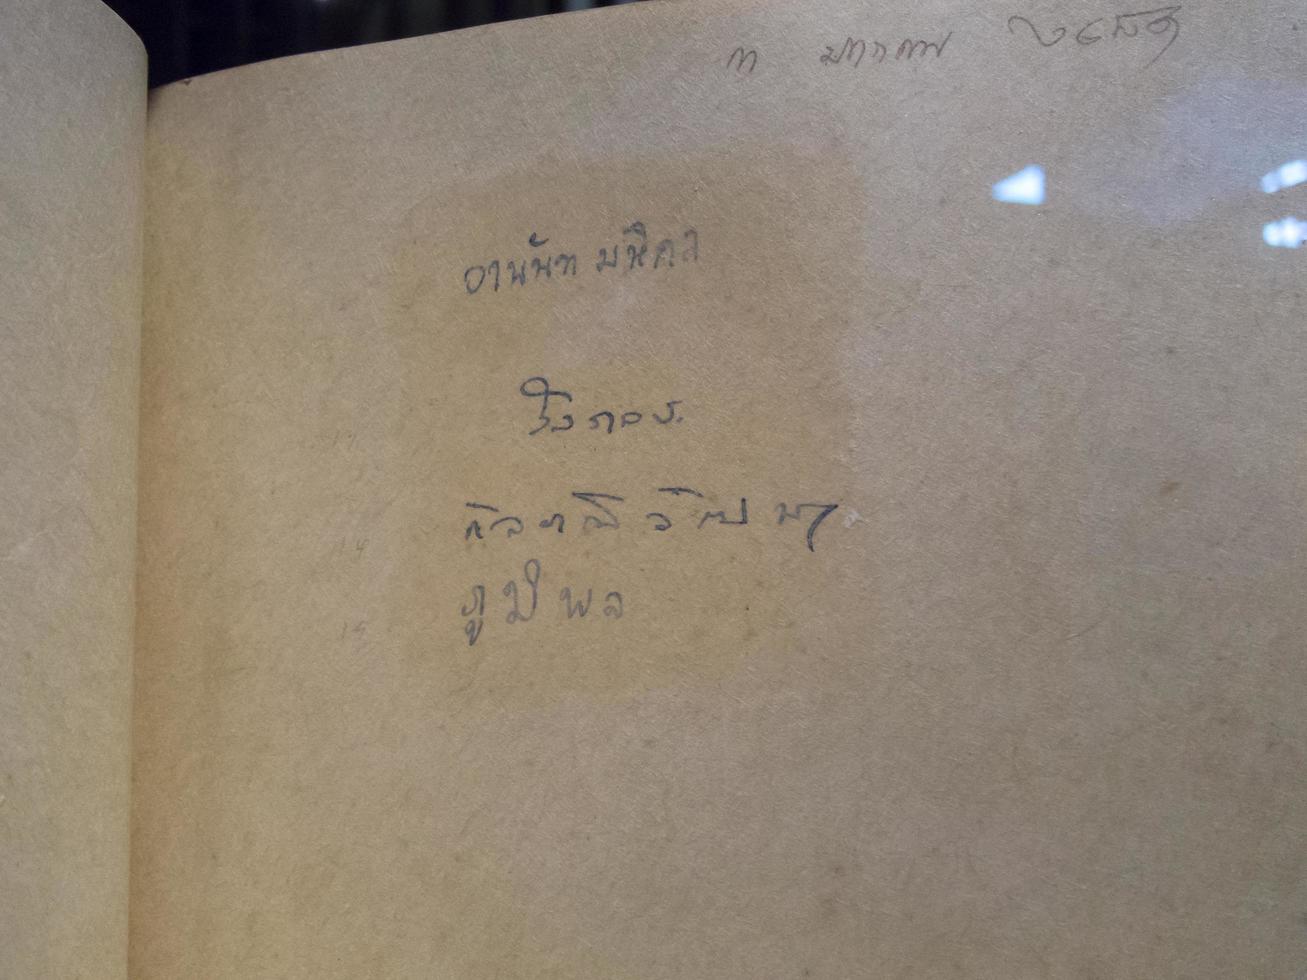 ๓ มกราคม ๒๔๘๑
อานันทมหิดล
กัลยาณิวัฒนา
ภูมิพล